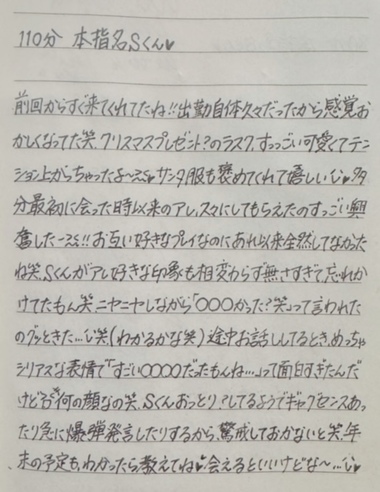 110分 本指名Sくん♥
前回からすぐ来てくれてたね!!出勤自体久々だったから感覚お
かしくなってた笑 クリスマスプレゼント?のラスク、すっごい可愛くてテン
ション上がちゃったよ〜 サンタ服も褒めてくれて嬉しい 多
分最初に会った時以来のアレ、久々にしてもらえたのすっごい興
奮した〜!!お互い好きなプレイなのにあれ以来全然してなかった
ね笑 Sくんがアレ好きな印象も相変わらず無さすぎて忘れか
けてたもん笑 ニヤニヤしながら「〇〇〇かった?笑」って言われた
のグッときた…(わかるかな笑)途中お話ししてるとき、めっちゃ
シリアスな表情で「すごい〇〇〇〇だったもんね…」って面白すぎたんだ
けど 何の顔なの笑、Sくんおっとり?してるようでギャグセンスあっ
たり急に爆弾発言したりするから、警戒しておかないと笑、年
末の予定も、わかったら教えてね♥会えるといいけどな〜…